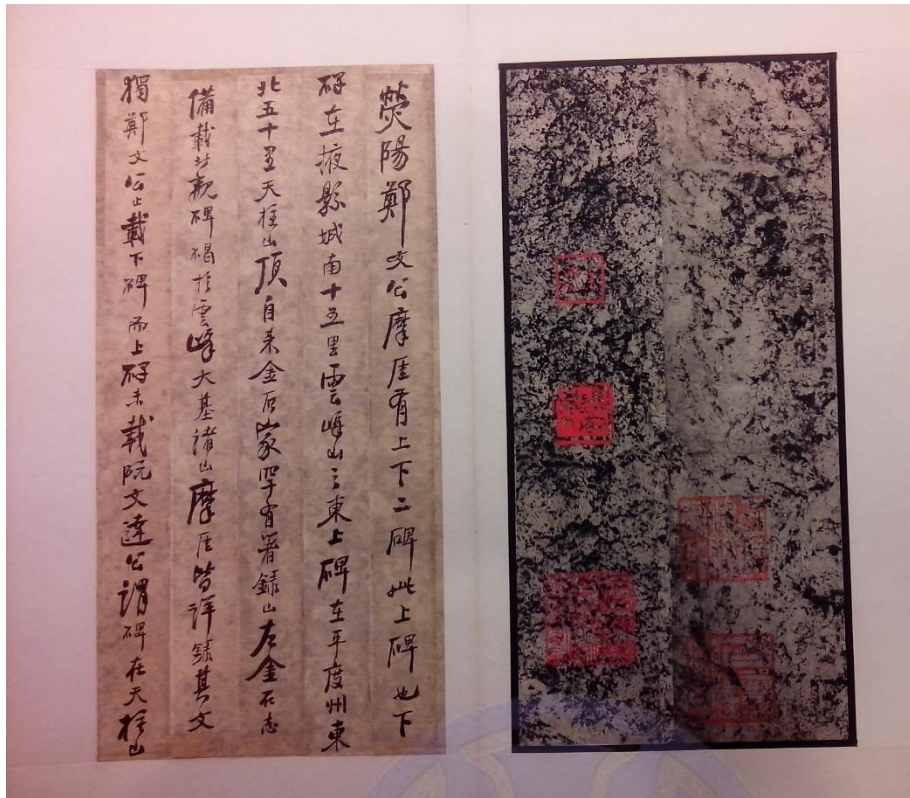 熒陽鄭文公摩厓有上下二碑此上碑也下
碑在掖縣城南十五里雲峰山之東上碑在平度州東
北五十里天柱山頂自来金石家罕有著録山左金石志
備載於觀碑碣於雲峰大基諸山摩厓皆详録其文
獨鄭文公止載下碑而上碑未載阮文達公謂碑在天柱山